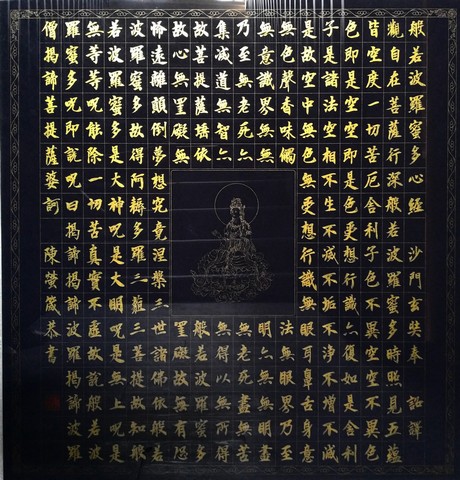 般若波羅蜜多心經 沙門玄奘奉 詔譯
觀自在菩薩行深般若波羅蜜多時照見五蘊
皆空度一切苦厄舍利子色不異空空不異色
色即是空空即是色受想行識亦復如是舍利
子是諸法空相不生不滅不垢不淨不增不減
是故空中無色無受想行識無眼耳鼻舌身意
無色聲香味觸法無眼界乃至
無意識界無無明亦無無明盡
乃至無老死亦無老死盡無苦
集滅道無智亦無得以無所得
故菩提薩埵依般若波羅蜜多
故心無罣礙無罣礙故無有恐
怖遠離顛倒夢想究竟涅槃三世諸佛依般若
波羅蜜多故得阿耨多羅三藐三菩提故知般
若波羅蜜多是大神咒是大明咒是無上咒是
無等等咒能除一切苦真實不虛故說般若波
羅蜜多咒即說咒曰揭諦揭諦波羅揭諦波羅
僧揭諦菩提薩婆訶 陳螢箴恭書